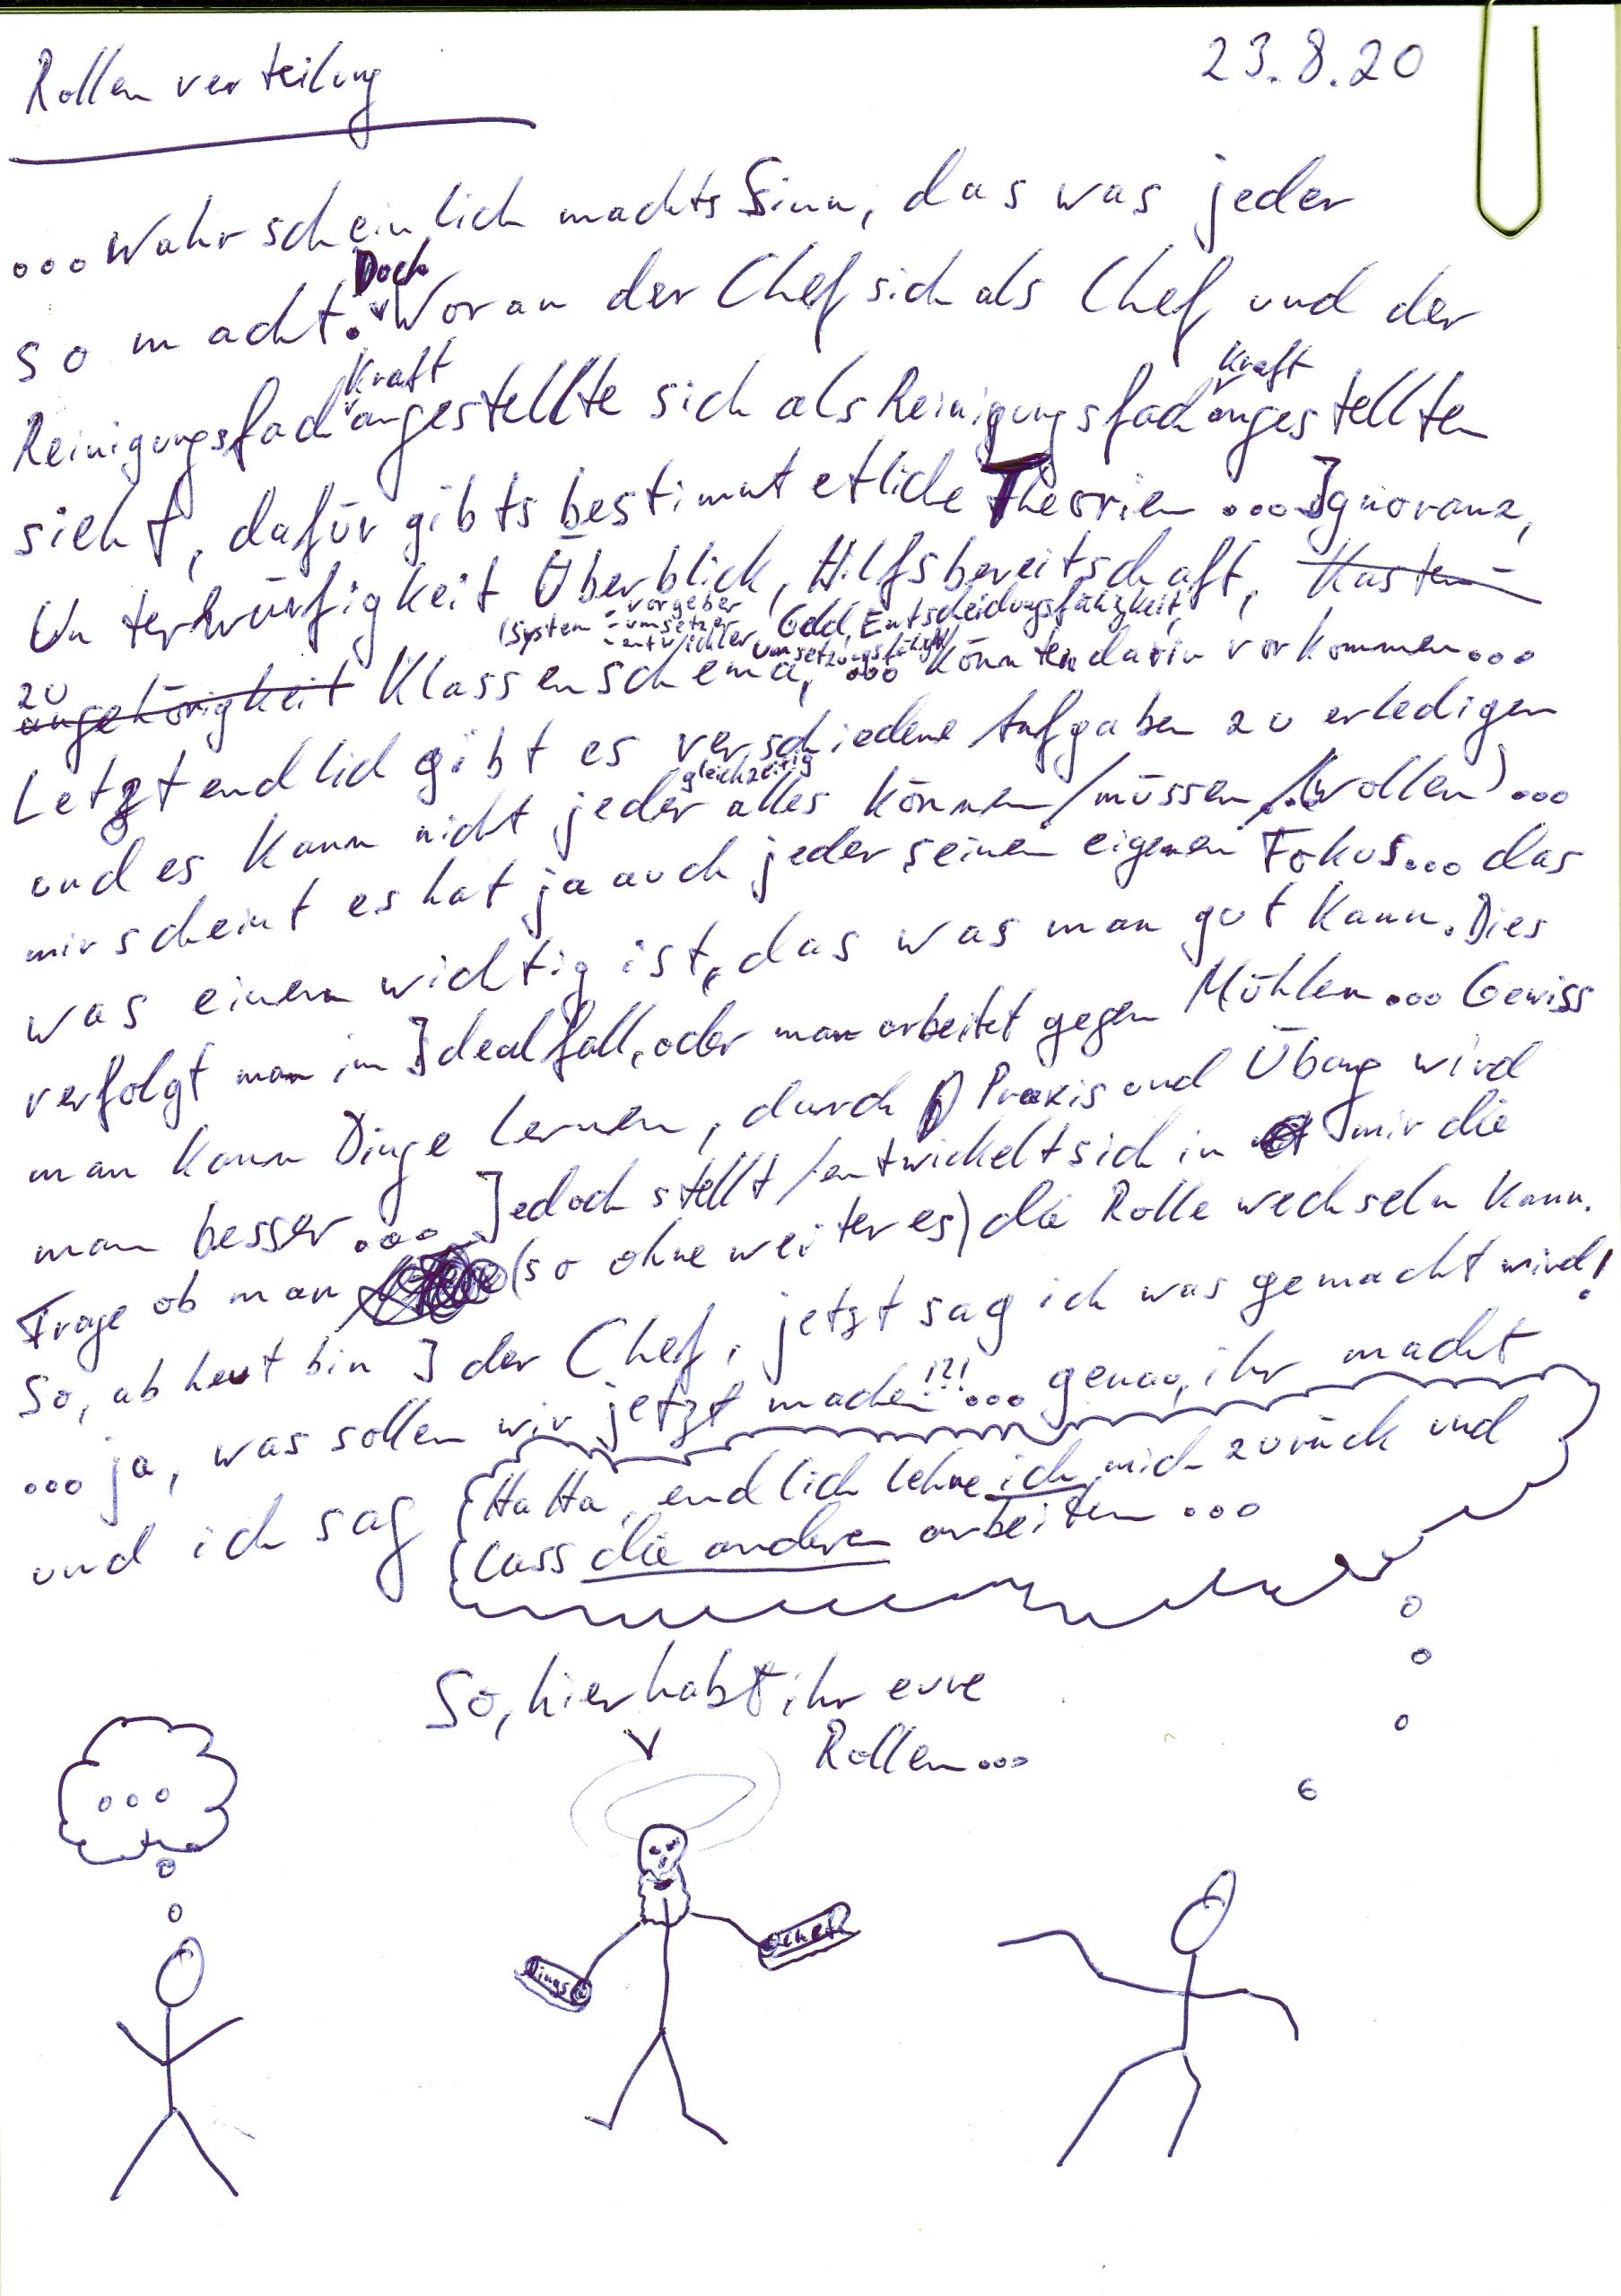 Rollenverteilung
23.8.20
...Wahrscheinlich machts Sinn, das was jeder
so macht. Doch Woran der Chef sich als Chef und der
Reinigungsfachkraftangestellte sich als Reinigungsfachkraftangestellten
sieht, dafür gibts bestimmt etliche Theorien ... Ignoranz,
Unterwürfigkeit Überblick, Hilfsbereitschaft, Kasten-
(System -vorgeber
-umsetzer
-entwickler, Geld, Entscheidungsfähigkeit,
Umsetzungsfähigkeit
zuangehörigkeit Klassenschema, ... könnten darin vorkommen...
Letztendlich gibt es verschiedene Aufgaben zu erledigen
und es kann nicht jeder gleichzeitig alles können/müssen/(wollen)...
mir scheint es hat ja auch jeder seinen eigenen Fokus... das
was einem wichtig ist, das was man gut kann. Dies
verfolgt man im Idealfall, oder man arbeitet gegen Mühlen... Gewiss
man kann Dinge lernen, durch Praxis und Übung wird
man besser... Jedoch stellt/entwickelt sich in mir die
Frage ob man (so ohne weiteres) die Rolle wechseln kann.
So, ab heut bin I der Chef, jetzt sag ich was gemacht wird!
... ja, was sollen wir jetzt machen!?! ... genau, ihr macht
und ich sag
HaHa, endlich lehne ich mich zurück und
lass die anderen arbeiten ...
So, hier habt ihr eure
Rollen...
...
Dings
Chef